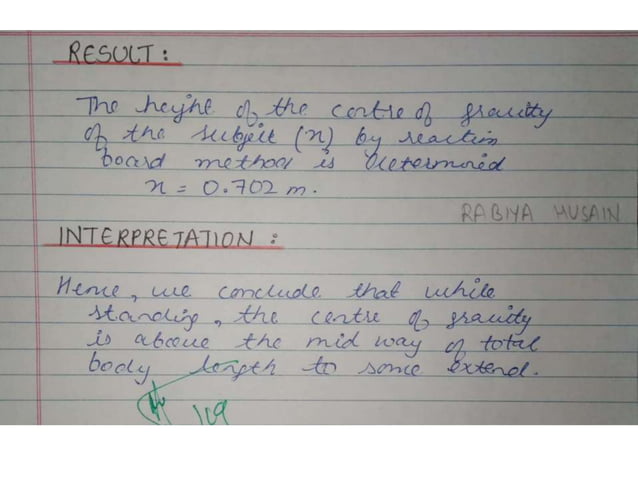 RESULT :
The height of the centre of gravity
of the subject (x) by reaction
board method is determined
x = 0.702 m.
RABIYA HUSAIN
INTERPRETATION :
Hence, we conclude that while
standing, the centre of gravity
is above the mid way of total
body length to some extend.